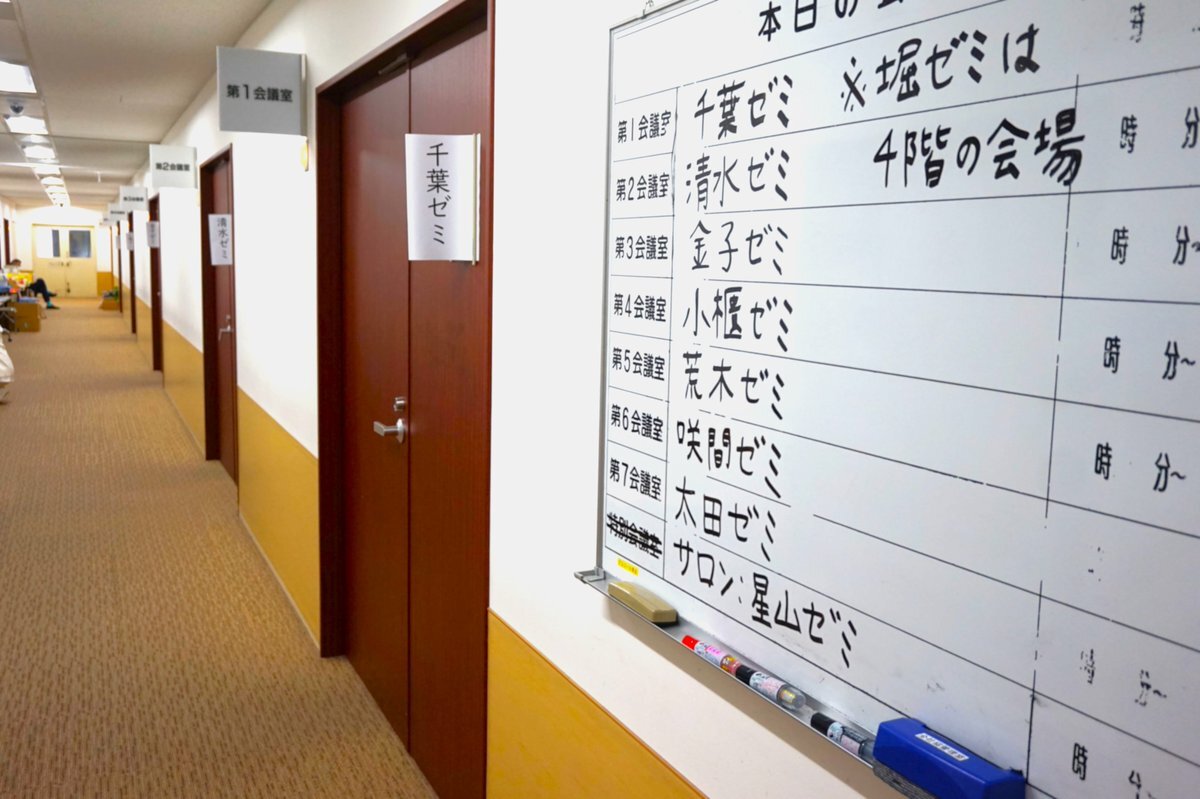 第1会議室
第2会議室
千葉ゼミ
清水ゼミ
本日の会
※堀ゼミは
4階の会場
第1会議室 千葉ゼミ 時 分
第2会議室 清水ゼミ 時 分~
第3会議室 金子ゼミ 時 分~
第4会議室 小櫃ゼミ 時 分~
第5会議室 荒木ゼミ
第6会議室 咲間ゼミ
第7会議室 太田ゼミ
特別会議室 サロン:星山ゼミ 時 分